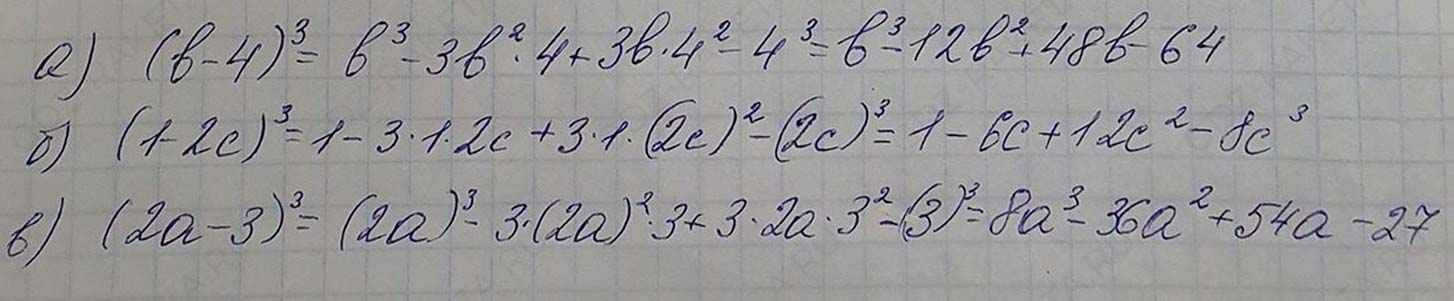 а) (b-4)³= b³-3b²·4+3b·4²-4³=b³-12b²+48b-64
б) (1-2c)³=1-3·1·2c+3·1·(2c)²-(2c)³=1-6c+12c²-8c³
в) (2a-3)³=(2a)³-3·(2a)²·3+3·2a·3²-(3)³=8a³-36a²+54a-27